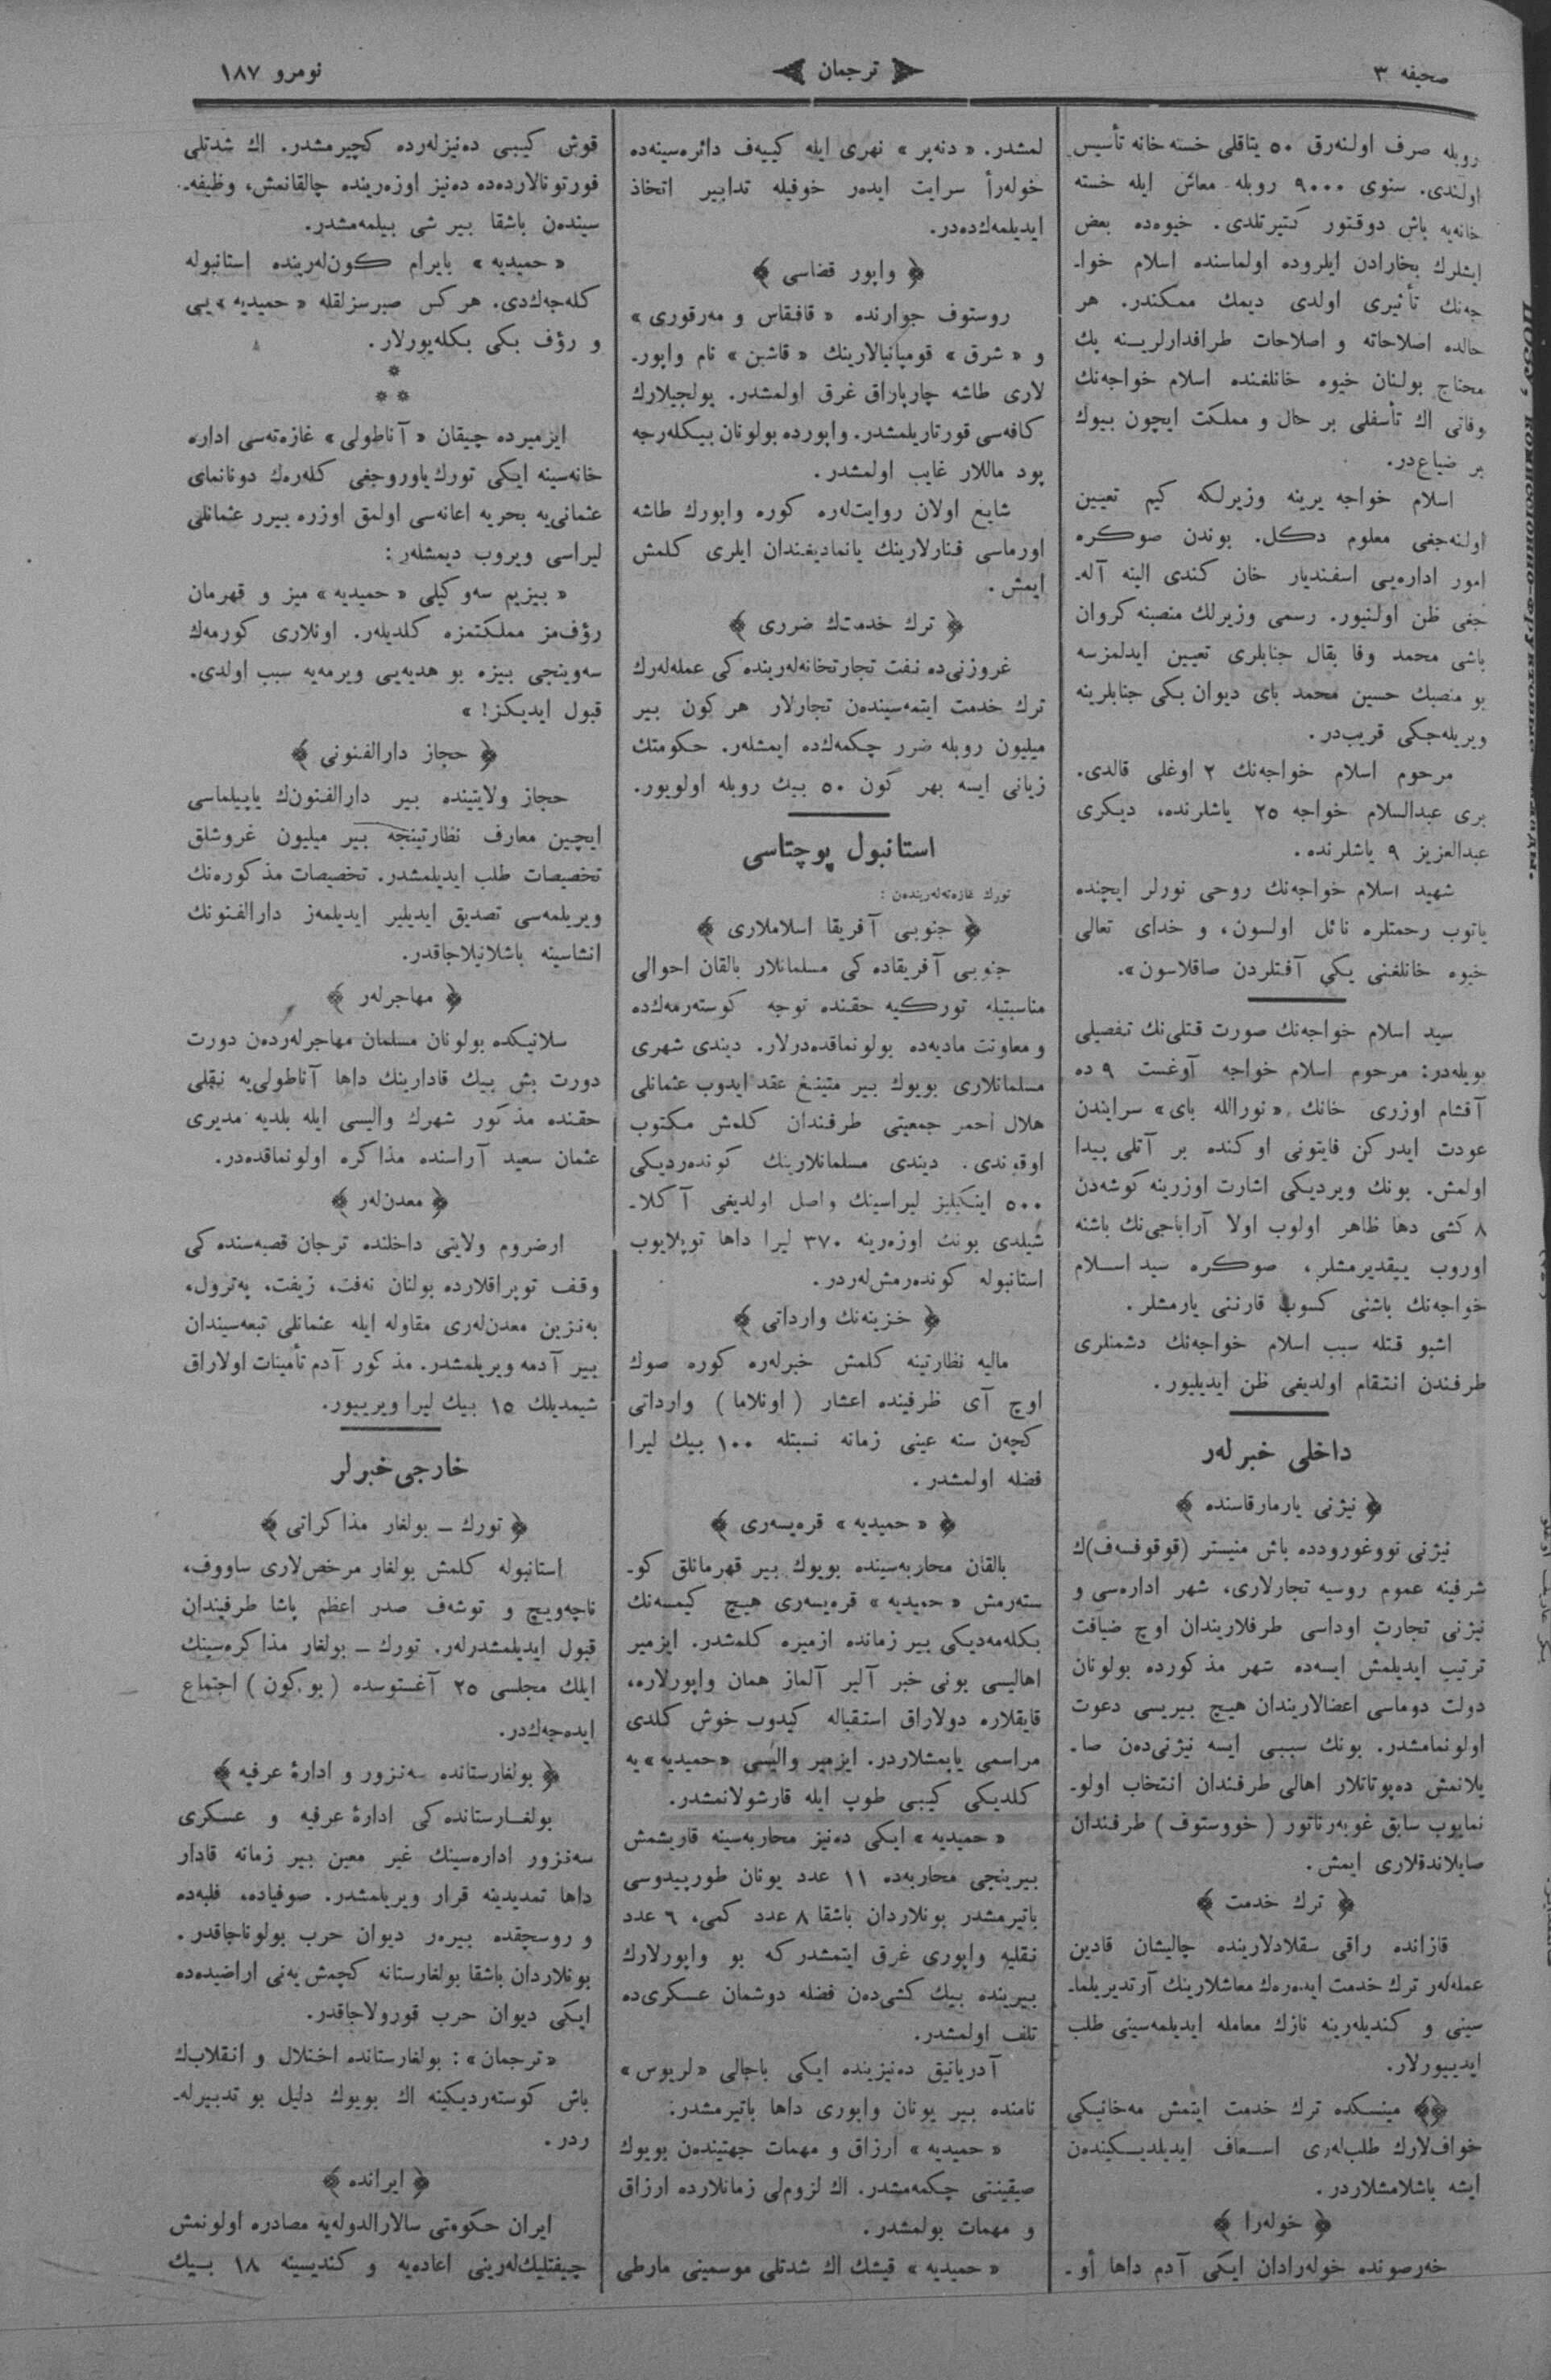 صحیفه ٣
ترجمان
نومرو ١٨٧
روبله صرف اولنەرق ٥٠ یتاقلی خسته خانه تأسیس
اولندی. سنوی ٩٠٠٠ روبله معاش ایله خسته
خانه‌یه باش دوقتور كتیرتلدی. خیوه‌ده بعض
ایشلرك بخارادن ایلروده اولماسنده اسلام خوا-
جه‌نك تأثیری اولدی دیمك ممكندر. هر
حالده اصلاحاته و اصلاحات طرافدارلرینه پك
محتاج بولنان خیوه خانلغنده اسلام خواجه‌نك
وفاتی اك تأسفلی بر حال و مملكت ایچون بیوك
بر ضیاع‌در.
اسلام خواجه یرینه وزیرلكه كیم تعیین
اولنه‌جغی معلوم دكل. بوندن صوكره
امور اداره‌یی اسفندیار خان كندی الینه آله-
جغی ظن اولنیور. رسمی وزیرلك منصبنه كروان
باشی محمد وفا بقال جنابلری تعیین ایدلمزسه
بو منصبك حسین محمد بای دیوان بكی جنابلرینه
ویریله‌جكی قریب‌در.
مرحوم اسلام خواجه‌نك ٢ اوغلی قالدی.
بری عبدالسلام خواجه ٢٥ یاشلرنده، دیكری
عبدالعزیز ٩ یاشلرنده.
شهید اسلام خواجه‌نك روحی نورلر ایچنده
یاتوب رحمتلره نائل اولسون، و خدای تعالی
خیوه خانلغنی یكی آفتلردن صاقلاسون».
سید اسلام خواجه‌نك صورت قتلی‌نك تفصیلی
بویله‌در: مرحوم اسلام خواجه آوغست ٩ ده
آقشام اوزری خانك «نورالله بای» سرایندن
عودت ایدركن فایتونی اوكنده بر آتلی پیدا
اولمش. بونك ویردیكی اشارت اوزرینه كوشه‌دن
٨ كشی دها ظاهر اولوب اولا آراباجی‌نك باشنه
اوروب ییقدیرمشلر، صوكره سید اسلام
خواجه‌نك باشنی كسوب قارننی یارمشلر.
اشبو قتله سبب اسلام خواجه‌نك دشمنلری
طرفندن انتقام اولدیغی ظن ایدیلیور.
داخلی خبرلەر
﴿ نیژنی یارمارقاسنده ﴾
نیژنی نووغورودده باش منیستر (قوقوفسەف)ك
شرفینه عموم روسیه تجارلاری، شهر اداره‌سی و
نیژنی تجارت اوداسی طرفلاریندان اوچ ضیافت
ترتیب ایدیلمش ایسه‌ده شهر مذكورده بولونان
دولت دوماسی اعضالاریندان هیچ بیریسی دعوت
اولونمامشدر. بونك سببی ایسه نیژنی‌دەن صا-
یلانمش دەپوتاتلار اهالی طرفندان انتخاب اولو-
نمایوب سابق غوبەرناتور (خووستوف) طرفندان
صایلاندقلاری ایمش.
﴿ ترك خدمت ﴾
قازانده راقی سقلادلارینده چالیشان قادین
عمله‌لەر ترك خدمت ایدەرەك معاشلارینك آرتدیریلما-
سینی و كندیلەرینه نازك معامله ایدیلمه‌سینی طلب
ایدییورلار.
﴿﴾ مینسكده ترك خدمت ایتمش مەخانیكی
خواف‌لارك طلب‌لەری اسعاف ایدیلدیكیندەن
ایشه باشلامشلاردر.
﴿ خولەرا ﴾
خەرصونده خولەرادان ایكی آدم داها أو-
لمشدر. «دنەپر» نهری ایله كییەف دائره‌سینه‌ده
خولەرأ سرایت ایدەر خوفیله تدابیر اتخاذ
ایدیلمەك‌ده‌در.
﴿ واپور قضاسی ﴾
روستوف جوارنده «قافقاس و مەرقوری»
و «شرق» قومپانیالارینك «قاشبن» نام واپور-
لاری طاشه چارپاراق غرق اولمشدر. یولجیلارك
كافه‌سی قورتاریلمشدر. واپورده بولونان بیكلەرجه
پود ماللار غایب اولمشدر.
شایع اولان روایت‌لەره كوره واپورك طاشه
اورماسی فنارلارینك یانمادیغندان ایلری كلمش
ایمش.
﴿ ترك خدمت‌ك ضرری ﴾
غروزنی‌ده نفت تجارتخانه‌لەرینده‌كی عمله‌لەرك
ترك خدمت ایتمه‌سیندەن تجارلار هركون بیر
میلیون روبله ضرر چكمەك‌ده ایمشلەر. حكومتك
زیانی ایسه بهر كون ٥٠ بیك روبله اولویور.
استانبول پوچتاسی
تورك غازەته‌لەریندەن:
﴿ جنوبی آفریقا اسلاملاری ﴾
جنوبی آفریقاده‌كی مسلمانلار بالقان احوالی
مناسبتیله توركیه حقنده توجه كوستەرمەك‌ده
و معاونت مادیه‌ده بولونماقده‌درلار. دیندی شهری
مسلمانلاری بویوك بیر متینغ عقد ایدوب عثمانلی
هلال احمر جمعیتی طرفندان كلمش مكتوب
اوقوندی. دیندی مسلمانلارینك كوندەردیكی
٥٠٠ اینكیلیز لیراسینك واصل اولدیغی آكلا-
شیلدی بونك اوزەرینه ٣٧٠ لیرا داها توپلایوب
استانبوله كوندەرمش‌لەردر.
﴿ خزینه‌نك وارداتی ﴾
مالیه نظارتینه كلمش خبرلەره كوره صوك
اوچ آی ظرفینده اعشار (اونلاما) وارداتی
كچەن سنه عینی زمانه نسبتله ١٠٠ بیك لیرا
فضله اولمشدر.
﴿ «حمیدیه» قرەیسەری ﴾
بالقان محاربه‌سینده بویوك بیر قهرمانلق كو-
ستەرمش «حمیدیه» قرەیسەری هیچ كیمسه‌نك
بكله‌مه‌دیكی بیر زمانده ازمیره كلمشدر. ایزمیر
اهالیسی بونی خبر آلیر آلماز همان واپورلاره،
قایقلاره دولاراق استقباله كیدوب خوش كلدی
مراسمی یاپمشلاردر. ایزمیر والیسی «حمیدیه»یه
كلدیكی كیبی طوپ ایله قارشولانمشدر.
«حمیدیه» ایكی دەنیز محاربه‌سینه قاریشمش
بیرینجی محاربه‌ده ١١ عدد یونان طورپیدوسی
باتیرمشدر بونلاردان باشقا ٨ عدد كمی، ٦ عدد
نقلیه واپوری غرق ایتمشدركه بو واپورلارك
بیرینده بیك كشی‌دەن فضله دوشمان عسكری‌ده
تلف اولمشدر.
آدریاتیق دەنیزینده ایكی باجالی «لریوس»
نامنده بیر یونان واپوری داها باتیرمشدر.
«حمیدیه» ارزاق و مهمات جهتیندەن بویوك
صیقینتی چكمه‌مشدر. اك لزوملی زمانلارده ارزاق
و مهمات بولمشدر.
«حمیدیه» قیشك اك شدتلی موسمینی مارطی
قوش كیبی دەنیزلەرده كچیرمشدر. اك شدتلی
فورتونالارده‌ده دەنیز اوزەرینده چالقانمش، وظیفه-
سیندەن باشقا بیر شی بیلمه‌مشدر.
«حمیدیه» بایرام كون‌لەرینده استانبوله
كله‌جەك‌دی. هركس صبرسزلقله «حمیدیه»یی
و رؤف بكی بكله‌یورلار.
*
* *
ایزمیرده چیقان «آناطولی» غازەته‌سی اداره
خانه‌سینه ایكی تورك یاوروجغی كلەرەك دونانمای
عثمانی‌یه بحریه اعانه‌سی اولمق اوزره بیرر عثمانلی
لیراسی ویروب دیمشلەر:
«بیزیم سەوكیلی «حمیدیه»میز و قهرمان
رؤف‌مز مملكتمزه كلدیلەر. اونلاری كورمەك
سەوینجی بیزه بو هدیه‌یی ویرمه‌یه سبب اولدی.
قبول ایدیكز!»
﴿ حجاز دارالفنونی ﴾
حجاز ولایتینده بیر دارالفنون‌ك یاپیلماسی
ایچین معارف نظارتینجه بیر میلیون غروشلق
تخصیصات طلب ایدیلمشدر. تخصیصات مذكوره‌نك
ویریلمه‌سی تصدیق ایدیلیر ایدیلمەز دارالفنونك
انشاسینه باشلانیلاجاقدر.
﴿ مهاجرلەر ﴾
سلانیكده بولونان مسلمان مهاجرلەردەن دورت
دورت بش بیك قادارینك داها آناطولی‌یه نقلی
حقنده مذكور شهرك والیسی ایله بلدیه مدیری
عثمان سعید آراسنده مذاكره اولونماقده‌در.
﴿ معدن‌لەر ﴾
ارضروم ولایتی داخلنده ترجان قصبه‌سنده‌كی
وقف توپراقلارده بولنان نەفت، زیفت، پەترول،
بەنزین معدن‌لەری مقاوله ایله عثمانلی تبعه‌سیندان
بیر آدمه ویریلمشدر. مذكور آدم تأمینات اولاراق
شیمدیلك ١٥ بیك لیرا ویرییور.
خارجی خبرلر
﴿ تورك – بولغار مذاكراتی ﴾
استانبوله كلمش بولغار مرخص‌لاری ساووف،
ناچەویچ و توشەف صدر اعظم پاشا طرفیندان
قبول ایدیلمشدرلەر. تورك – بولغار مذاكره‌سینك
ایلك مجلسی ٢٥ آغستوسده (بو كون) اجتماع
ایده‌جەك‌در.
﴿ بولغارستانده سەنزور و ادارهٔ عرفیه ﴾
بولغارستانده‌كی ادارهٔ عرفیه و عسكری
سەنزور اداره‌سینك غیر معین بیر زمانه قادار
داها تمدیدینه قرار ویریلمشدر. صوفیاده، فلبه‌ده
و روسچقده بیرەر دیوان حرب بولوناجاقدر.
بونلاردان باشقا بولغارستانه كچمش یەنی اراضیده‌ده
ایكی دیوان حرب قورولاجاقدر.
«ترجمان»: بولغارستانده اختلال و انقلاب‌ك
باش كوستەردیكینه اك بویوك دلیل بو تدبیرلە-
ردر.
﴿ ایرانده ﴾
ایران حكومتی سالارالدوله‌یه مصادره اولونمش
چیفتلیك‌لەرینی اعاده‌یه و كندیسینه ١٨ بیك